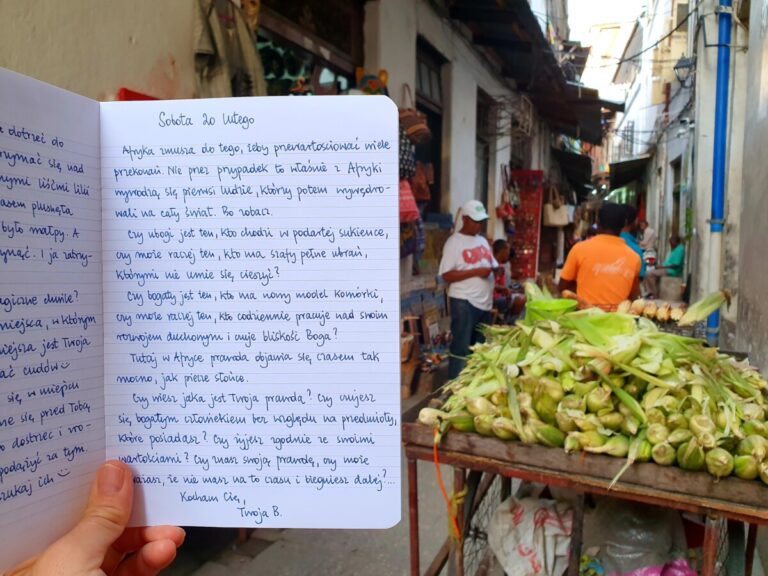 dotrzeć do
się nad
nymi liśćmi lilii
asem plusnęła
było małpy. A
ynąć. I ja zatrzy-
agiczne chwile?
miejsca, w którym
iejsza jest Twoja
ać cudów
się w miejscu
się przed Tobą
dostrzec i
podążyć za tym.
zukaj ich
Sobota 20 lutego
Afryka zmusza do tego, żeby przewartościować wiele
przekonań. Nie przez przypadek to właśnie z Afryki
wyrodzą się pierwsi ludzie, którzy potem wywędro-
wali na cały świat. Bo zobacz.
Czy ubogi jest ten, kto chodzi w podartej sukience,
czy może raczej ten, kto ma szafy pełne ubrań,
którymi nie umie się cieszyć?
Czy bogaty jest ten, kto ma nowy model komórki,
czy może raczej ten, kto codziennie pracuje nad swoim
rozwojem duchowym i czuje bliskość Boga?
Tutaj w Afryce prawda objawia się czasem tak
mocno, jak piecze słońce.
Czy wiesz jaka jest Twoja prawda? Czy czujesz
się bogatym człowiekiem bez względu na przedmioty,
które posiadasz? Czy żyjesz zgodnie ze swoimi
wartościami? Czy znasz swoją prawdę, czy może
że nie masz na to czasu i biegniesz dalej?...
Kocham Cię,
Twoja B.